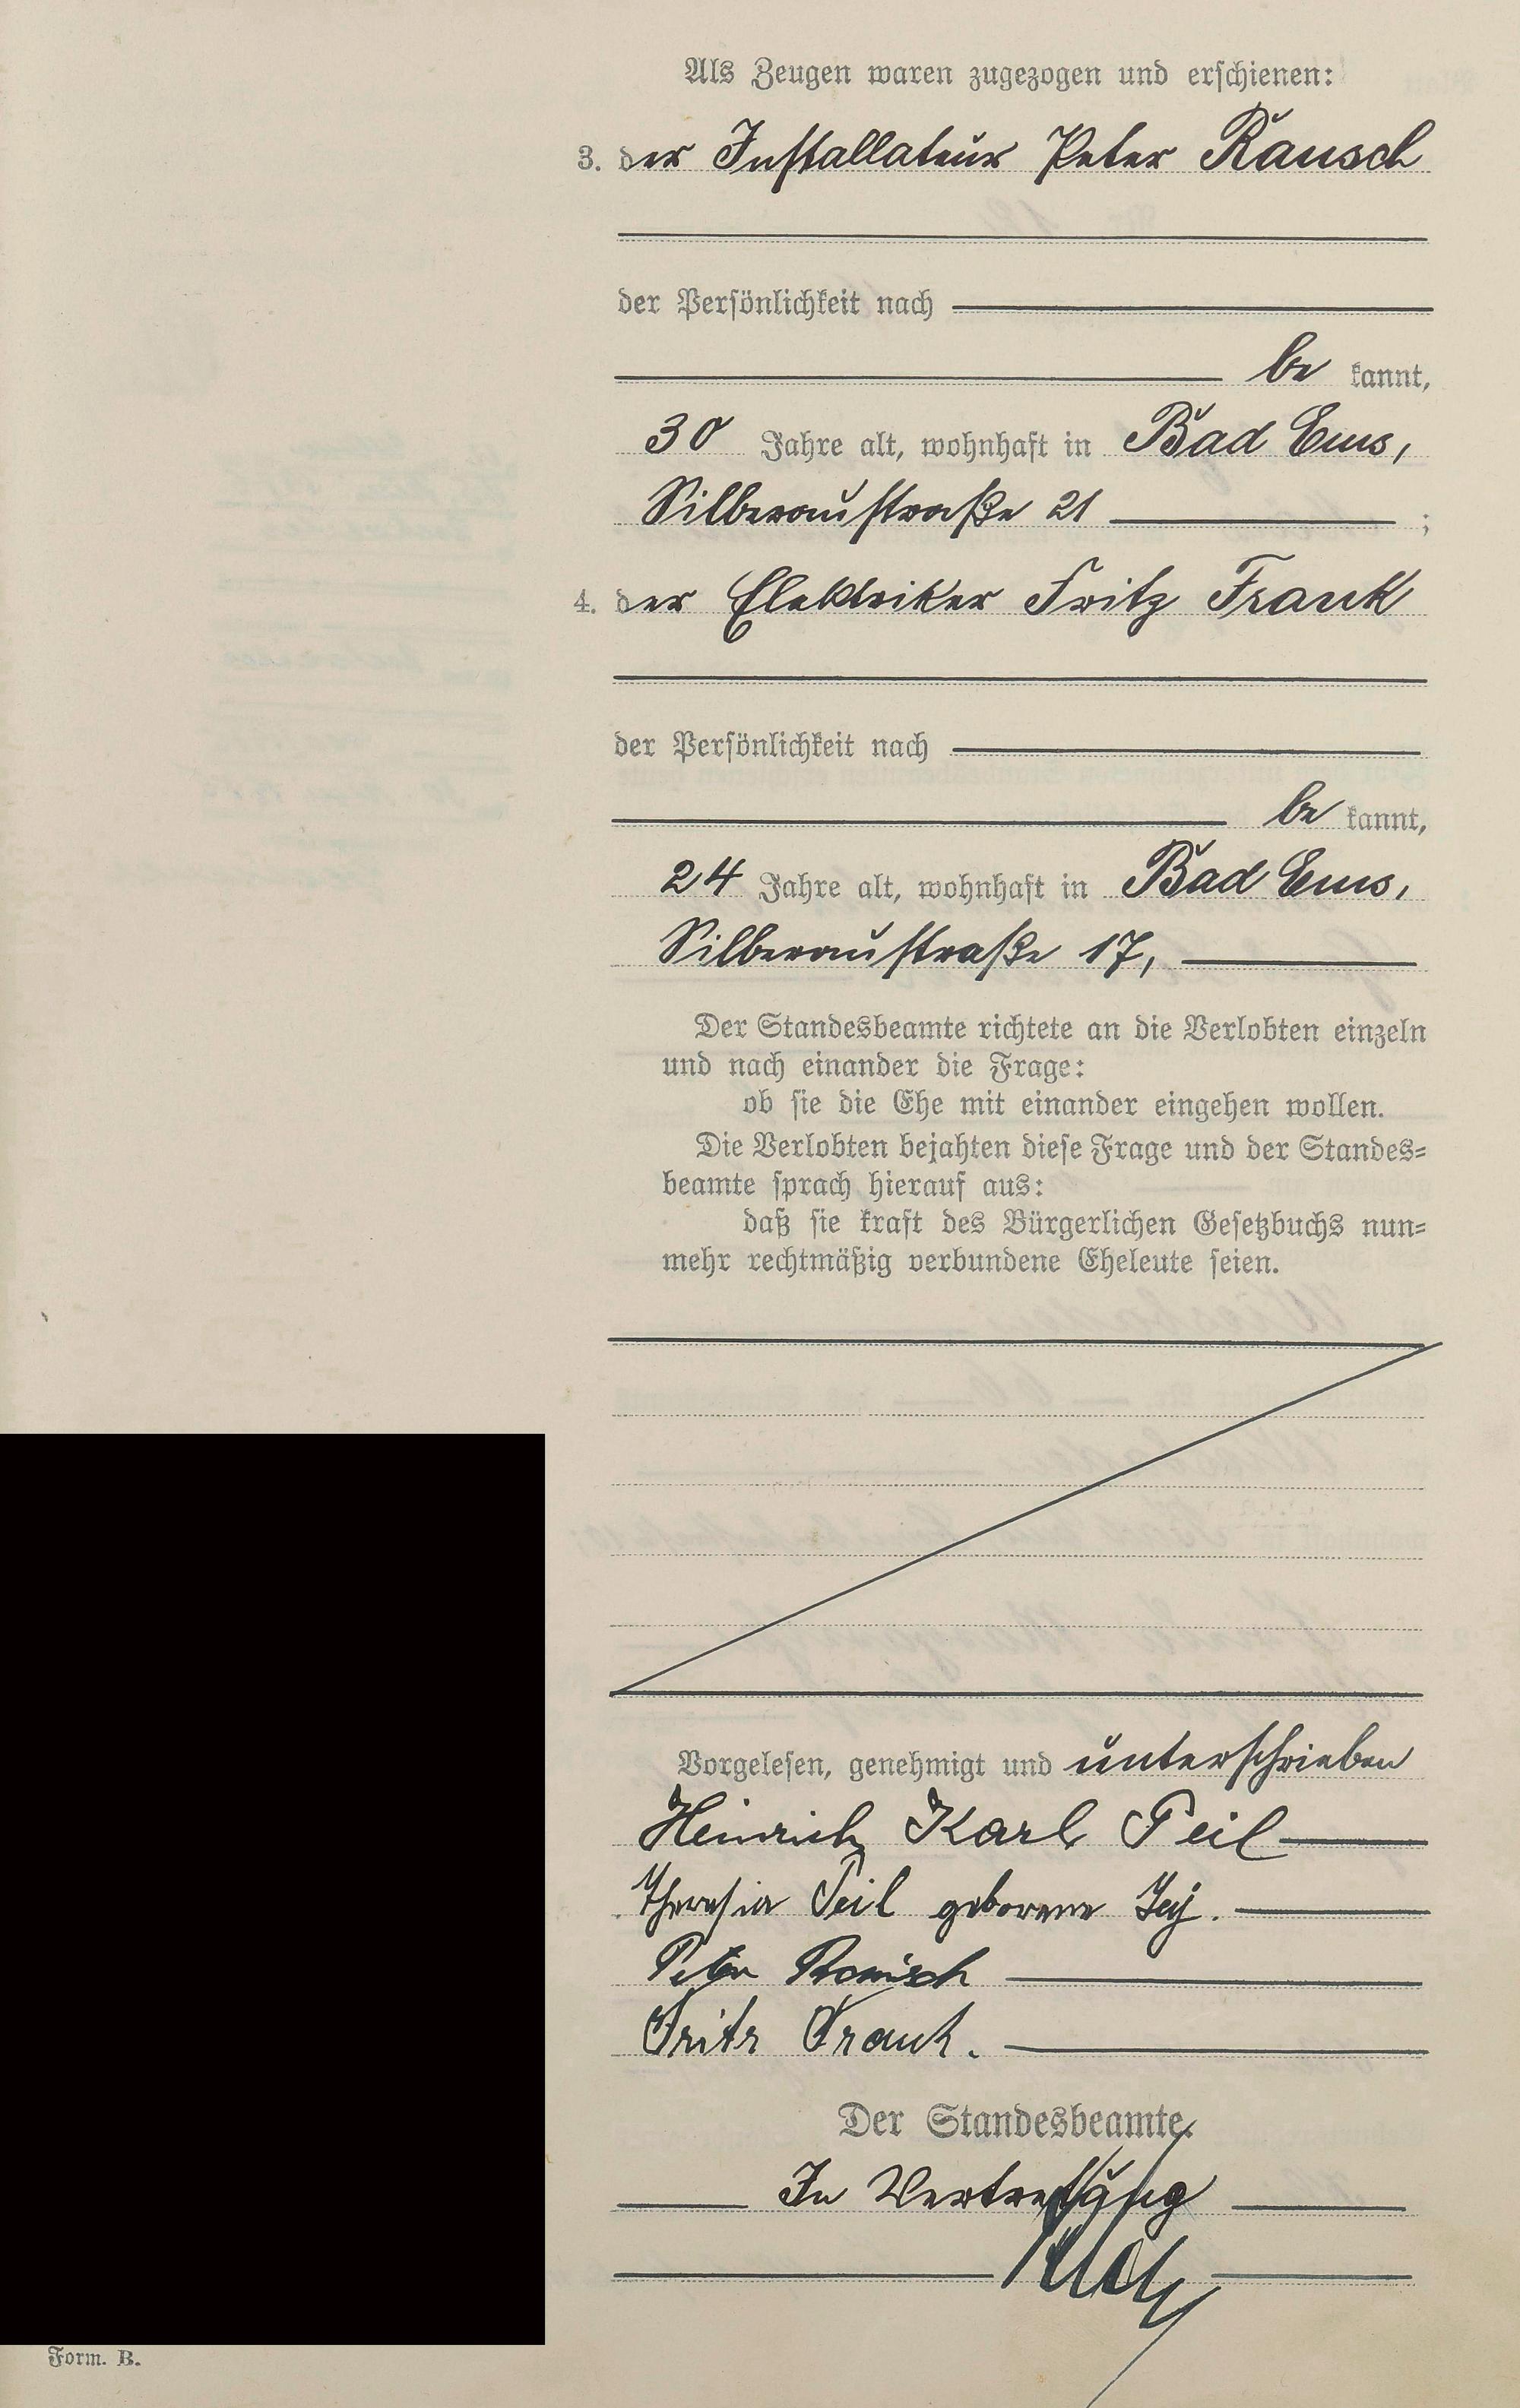 Als Zeugen waren zugezogen und erschienen:
3. der Installateur Peter Rausch
der Persönlichkeit nach
be kannt,
30 Jahre alt, wohnhaft in Bad Ems,
Silberaustraße 21 ;
4. der Elektriker Fritz Frank
der Persönlichkeit nach
be kannt,
24 Jahre alt, wohnhaft in Bad Ems,
Silberaustraße 17,
Der Standesbeamte richtete an die Verlobten einzeln
und nach einander die Frage:
ob sie die Ehe mit einander eingehen wollen.
Die Verlobten bejahten diese Frage und der Standes-
beamte sprach hierauf aus:
daß sie kraft des Bürgerlichen Gesetzbuchs nun-
mehr rechtmäßig verbundene Eheleute seien.
Vorgelesen, genehmigt und unterschrieben
Heinrich Karl Peil
Theresia Peil geborene
Peter Rausch
Fritz Frank.
Der Standesbeamte.
In Vertretung
Form. B.